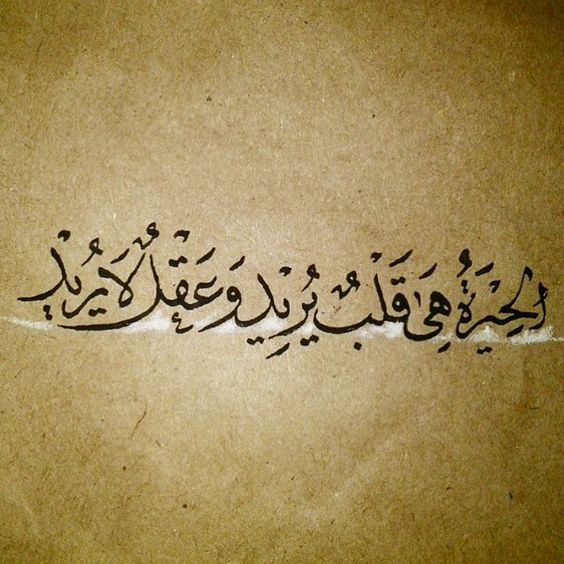 الحِيْرَةُ هِيَ قَلْبٌ يُرِيْدِ وَ عَقْلٌ لَا يُرِيْدْ